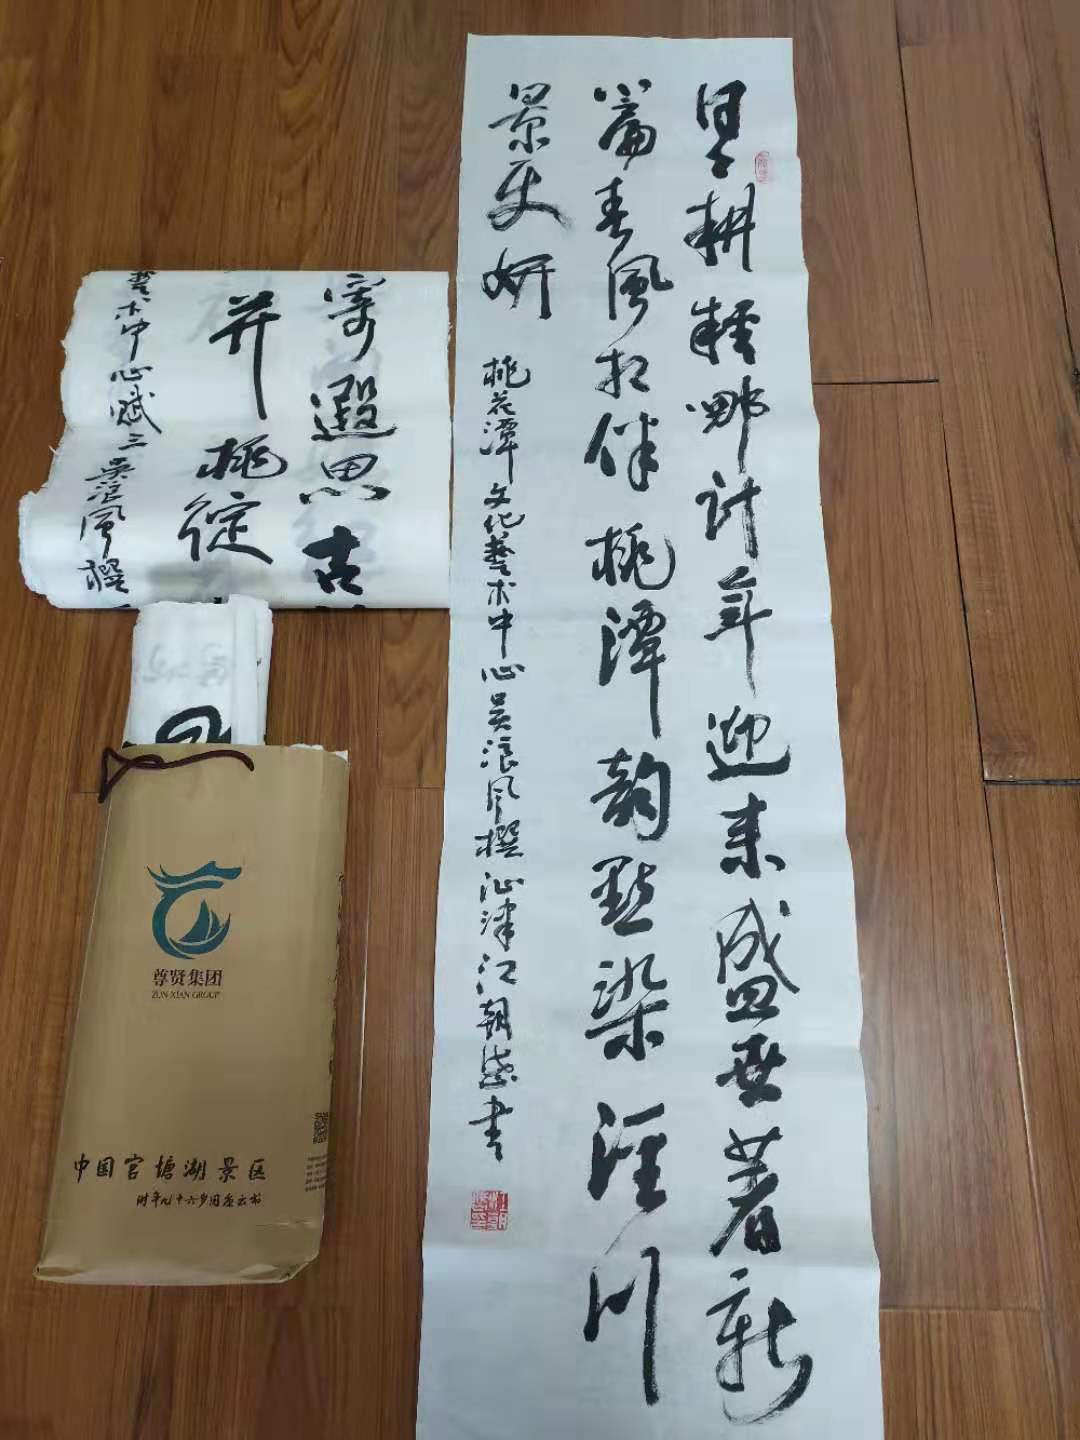 墨耕耘哪计年迎来盛世著新
篇春风相伴桃潭韵点染泾川
景更妍
桃花潭文化艺术中心吴浪风撰沁津江朝盛书
寄遐思古
并桃绽
艺术中心赋三吴浪风撰
尊贤集团
ZUN XIAN GROUP
中国官塘湖景区
时年九十六岁